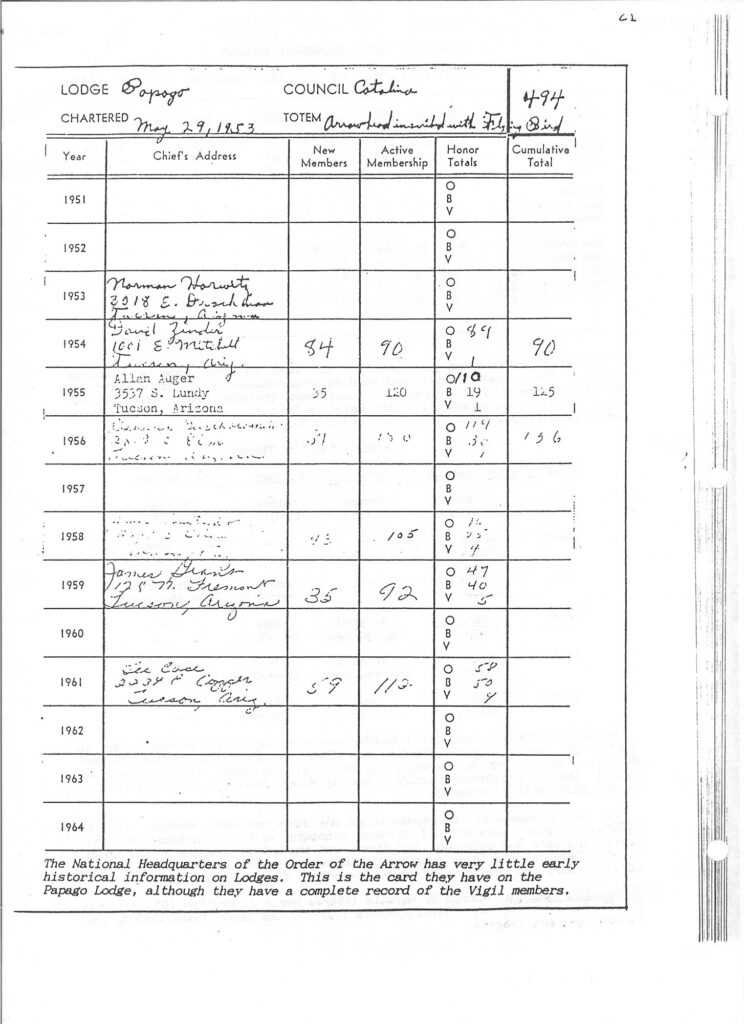 21
LODGE Papago COUNCIL Catalina 494
CHARTERED May 29, 1953 TOTEM Arrowhead inscribed with Flying Bird
Year Chief's Address New Members Active Membership Honor Totals Cumulative Total
1951 O
B
V
1952 O
B
V
1953 Norman Horwitz O
3018 E. B
Tucson, Arizona V
1954 David Zinder 84 90 O 89 90
1001 E. Mitchell B
Tucson, Ariz. V 1
1955 Allan Auger 35 120 O 110 125
3537 S. Lundy B 19
Tucson, Arizona V 1
1956 O 114
E. Elm B 30
Tucson V 1
1957 O
B
V
1958 43 105 O
B
V 4
1959 James Grant 35 92 O 47
N. Fremont B 40
Tucson, Arizona V 5
1960 O
B
V
1961 Case 59 112 O 58
2234 E Copper B 50
Tucson, Ariz. V 4
1962 O
B
V
1963 O
B
V
1964 O
B
V
The National Headquarters of the Order of the Arrow has very little early
historical information on Lodges. This is the card they have on the
Papago Lodge, although they have a complete record of the Vigil members.